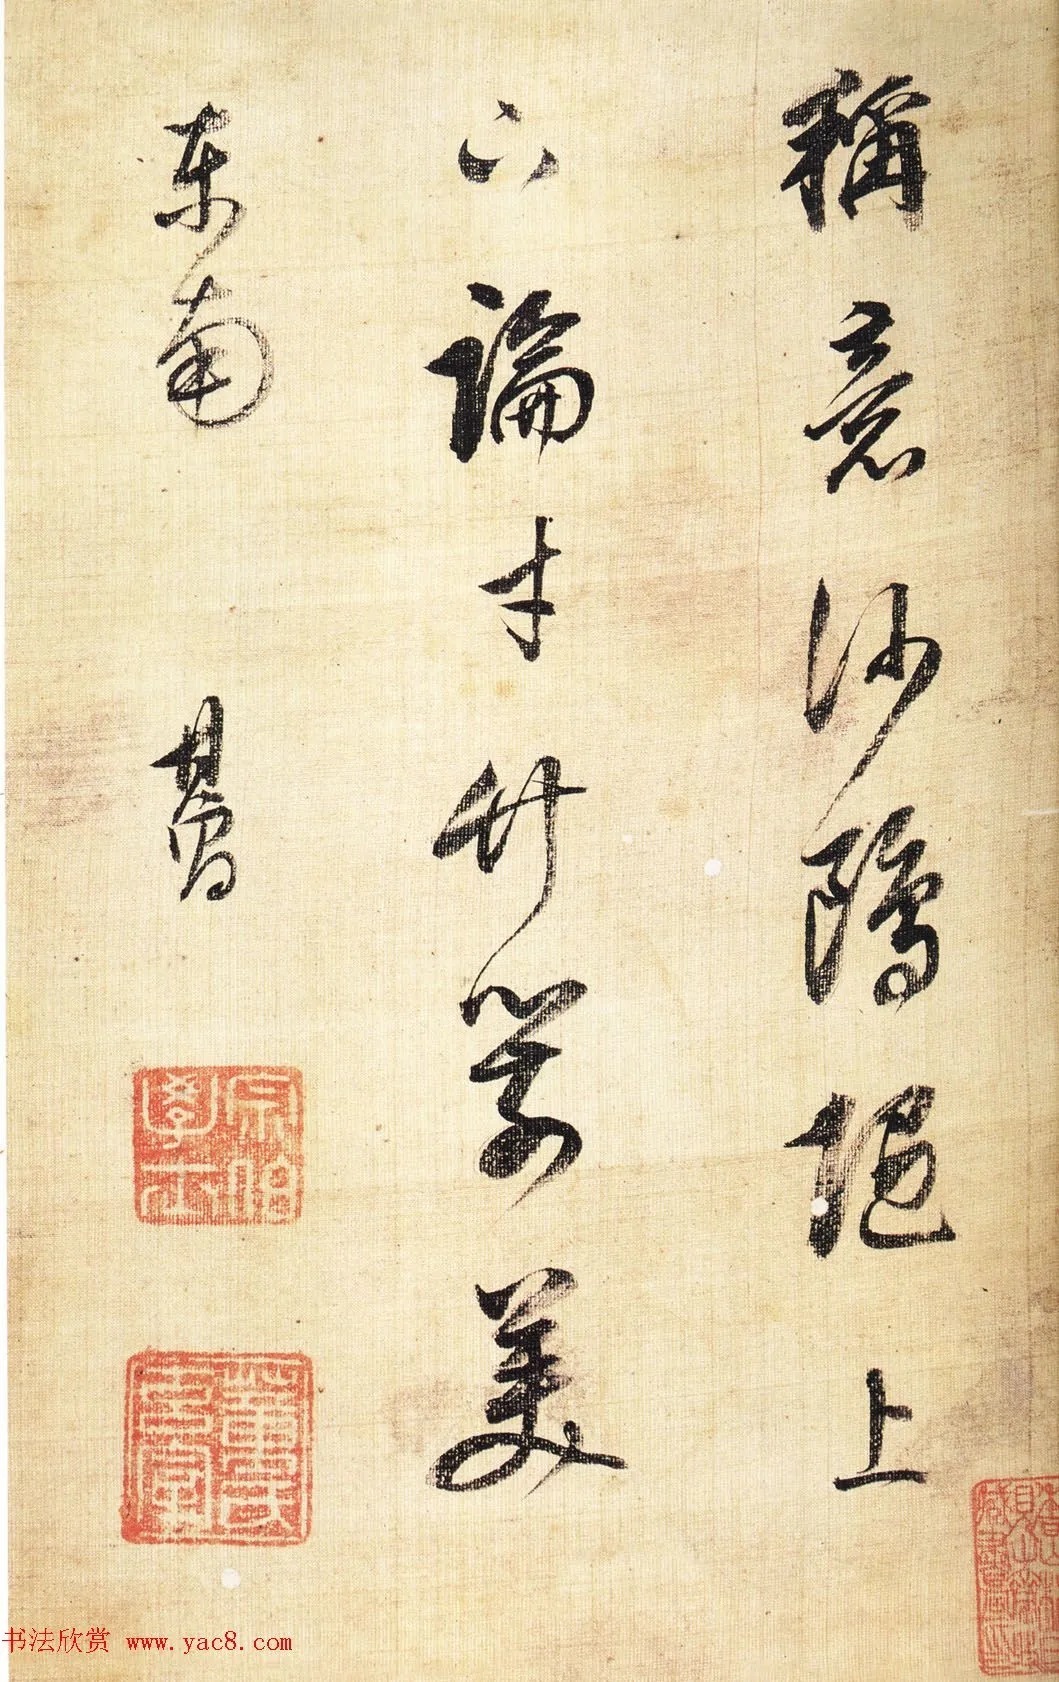 稱意沙上
下論才竹箭美
東南 其昌
宗伯學士
董氏玄宰
书法欣赏 www.yac8.com